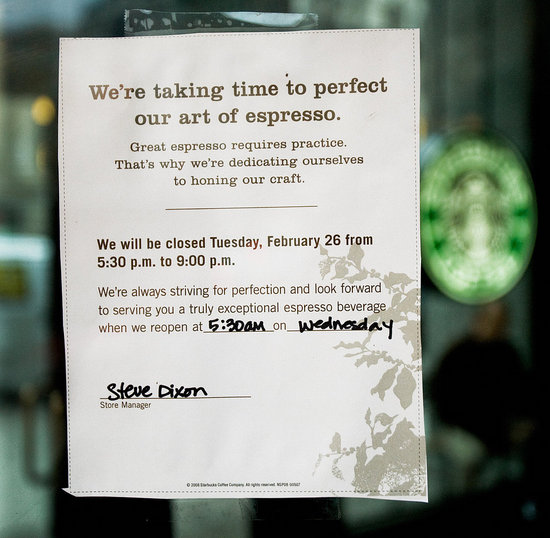 We're taking time to perfect
our art of espresso.
Great espresso requires practice.
That's why we're dedicating ourselves
to honing our craft.
We will be closed Tuesday, February 26 from
5:30 p.m. to 9:00 p.m.
We're always striving for perfection and look forward
to serving you a truly exceptional espresso beverage
when we reopen at 5:30am on wednesday
Steve Dixon
Store Manager
© 2008 Starbucks Coffee Company. All rights reserved.